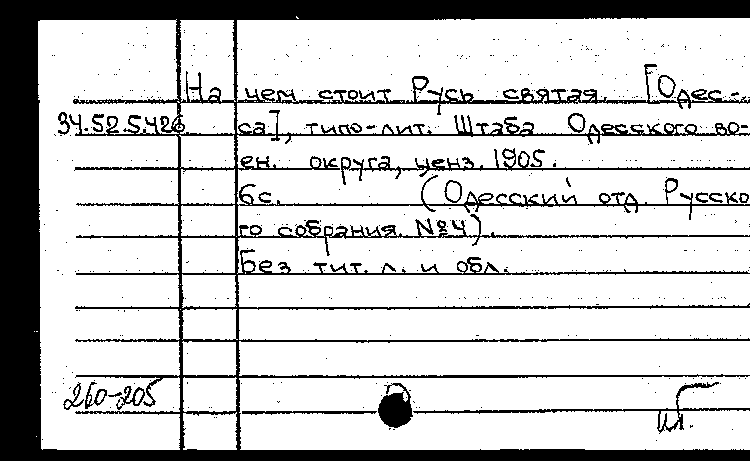 На чем стоит Русь святая. [Одес-
34.52.5.426 са], типо-лит. Штаба Одесского во-
ен. округа, ценз. 1905.
6с. (Одесский отд. Русско
го собрания. №4).
Без тит. л. и обл.
260-205